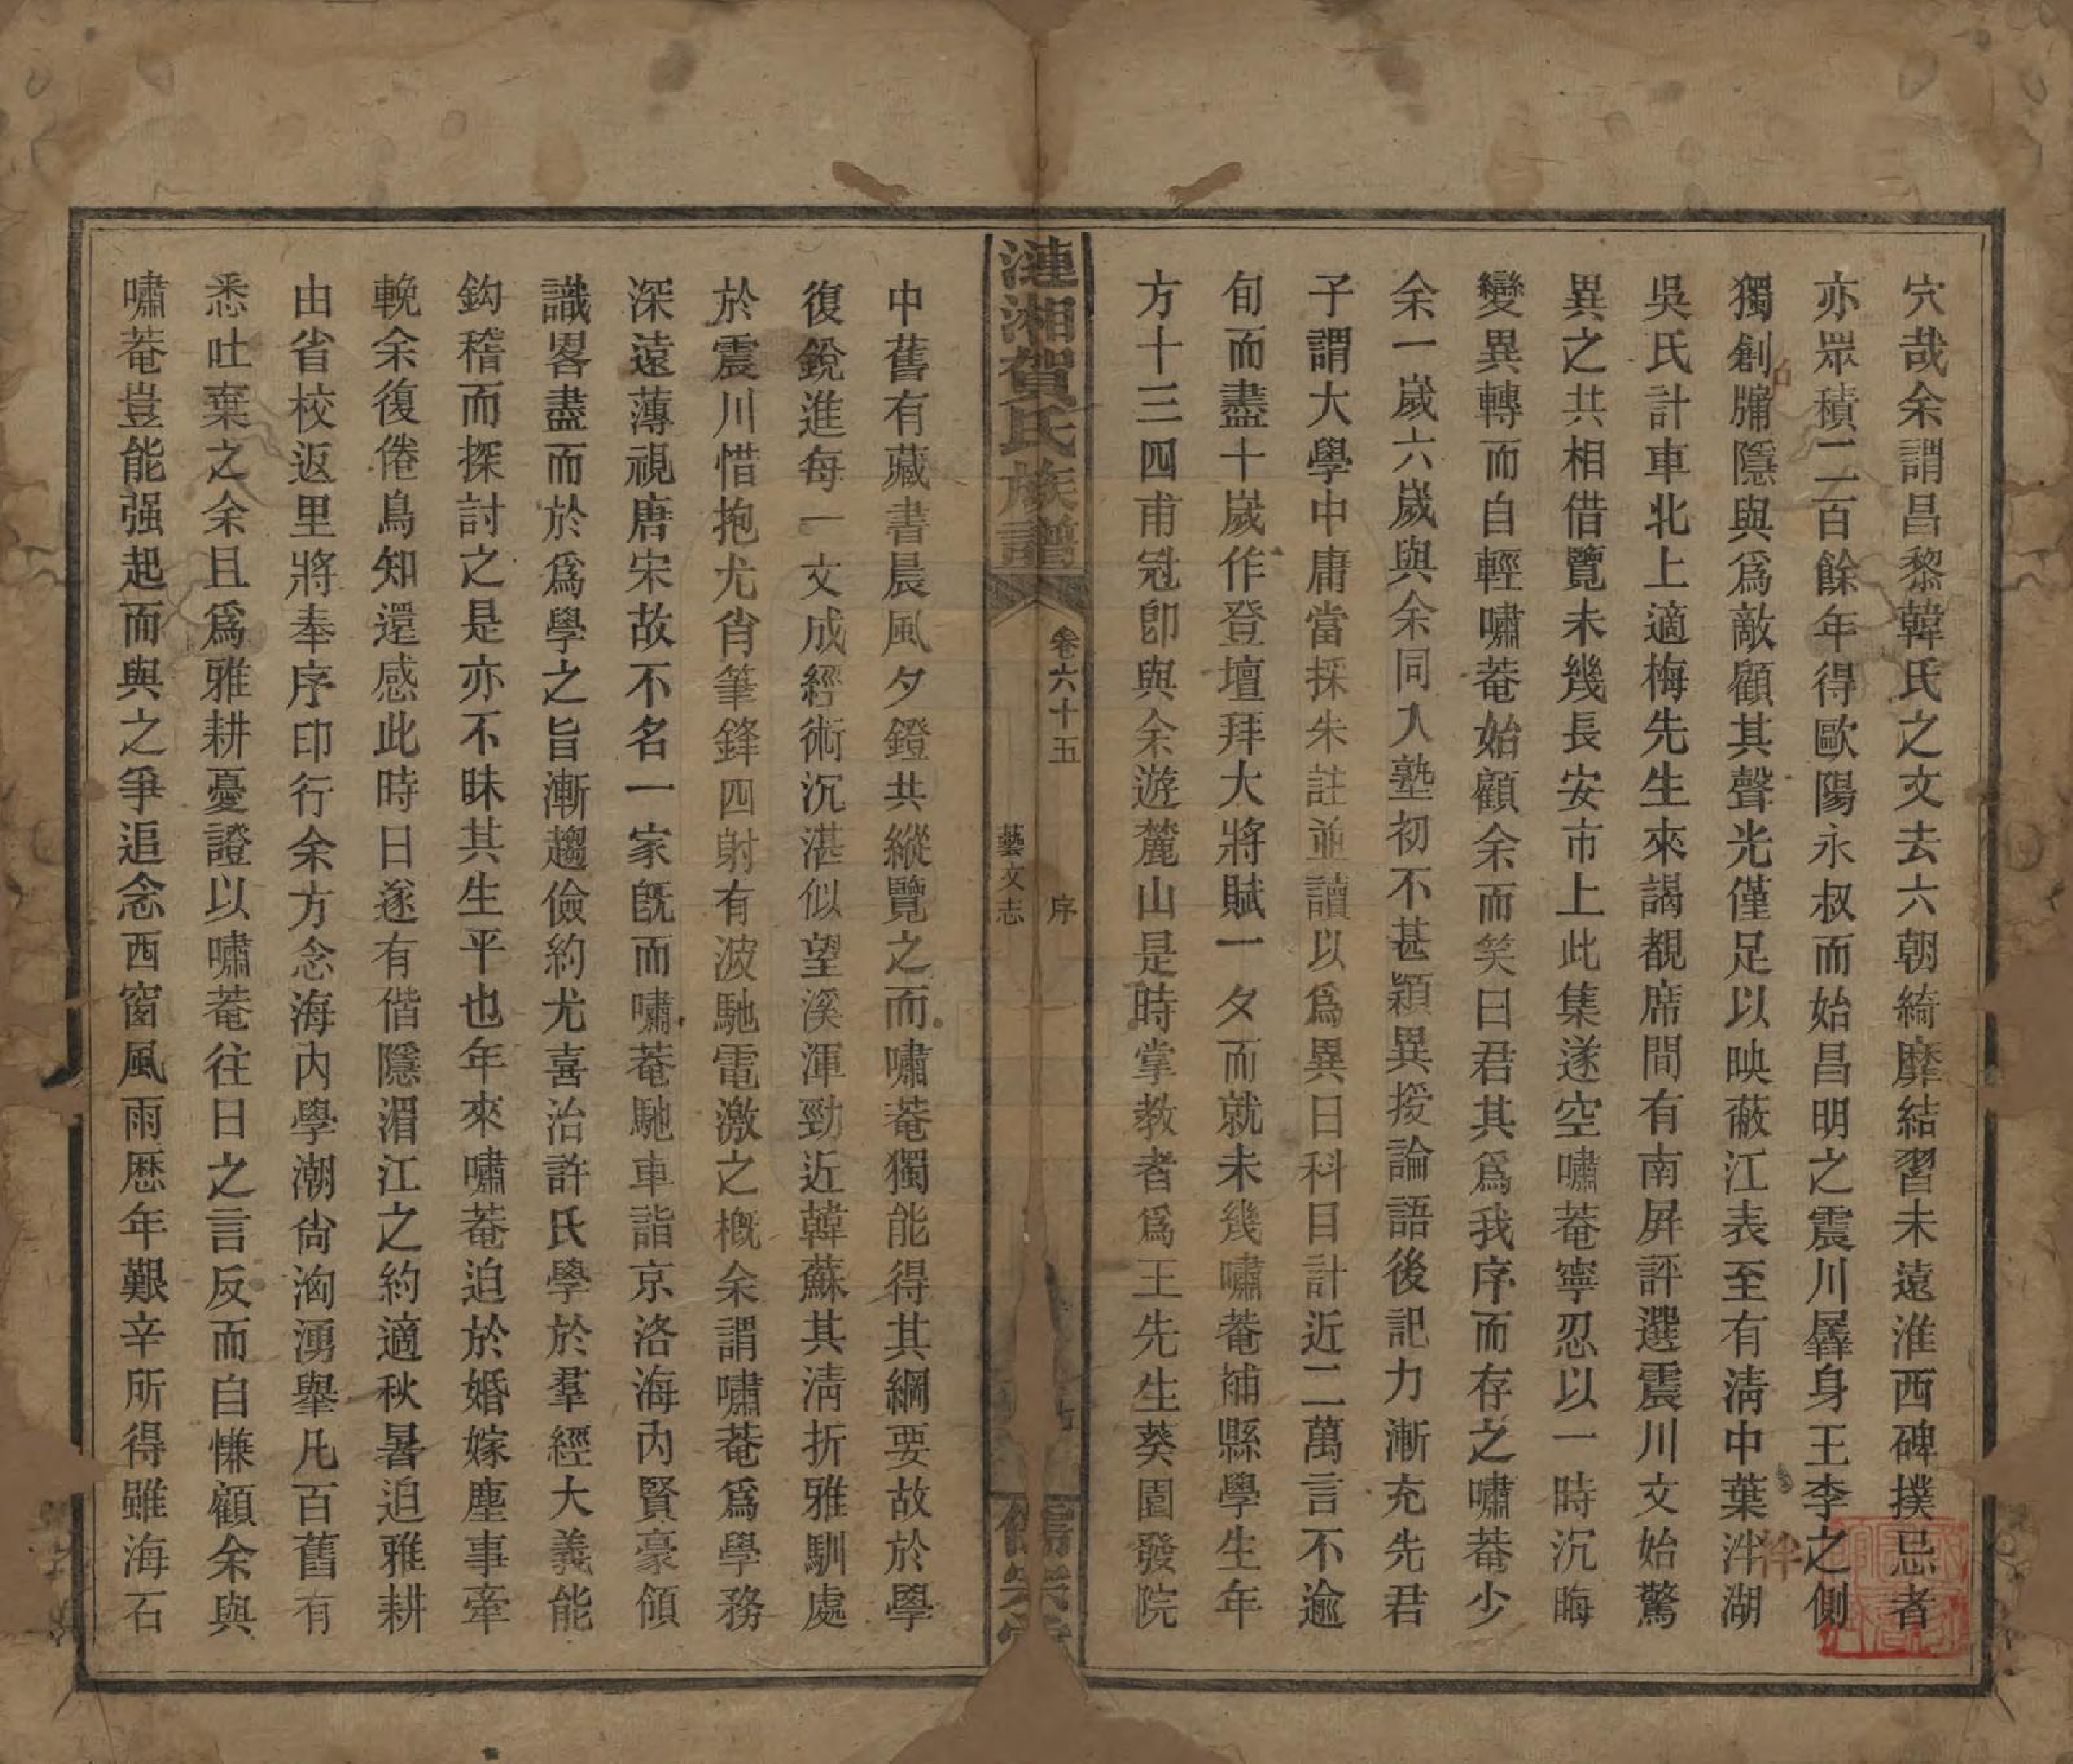 穴哉余謂昌黎韓氏之文去六朝綺靡結習未遠淮西碑撲忌者
亦眾積二百餘年得歐陽永叔而始昌明之震川羼身王李之側
獨創牖隱與爲敵顧其聲光僅足以映蔽江表至有淸中葉泮湖
吳氏計車北上適梅先生來謁覩席間有南屛評選震川文始驚
異之共相借覽未幾長安市上此集遂空嘯菴寧忍以一時沉晦
變異轉而自輕嘯菴始顧余而笑曰君其爲我序而存之嘯菴少
余一歲六歲與余同入塾初不甚穎異授論語後記力漸充先君
子謂大學中庸當採朱註並讀以爲異日科目計近二萬言不逾
旬而盡十歲作登壇拜大將賦一夕而就未幾嘯菴補縣學生年
方十三四甫冠卽與余遊麓山是時掌教者爲王先生葵園發院
漣湘賀氏族譜
卷六十五
藝文志
序
中舊有藏書晨風夕鐙共縱覽之而嘯菴獨能得其綱要故於學
復銳進每一文成經術沉湛似望溪渾勁近韓蘇其淸折雅馴處
於震川惜抱尤肖筆鋒四射有波馳電激之概余謂嘯菴爲學務
深遠薄視唐宋故不名一家旣而嘯菴馳車詣京洛海內賢豪傾
識畧盡而於爲學之旨漸趨儉約尤喜治許氏學於羣經大義能
鈎稽而探討之是亦不昧其生平也年來嘯菴迫於婚嫁塵事牽
輓余復倦鳥知還感此時日遂有偕隱湄江之約適秋暑迫雅耕
由省校返里將奉序印行余方念海內學潮尙洶湧舉凡百舊有
悉吐棄之余且爲雅耕憂證以嘯菴往日之言反而自慊顧余與
嘯菴豈能强起而與之爭追念西窗風雨歷年艱辛所得雖海石